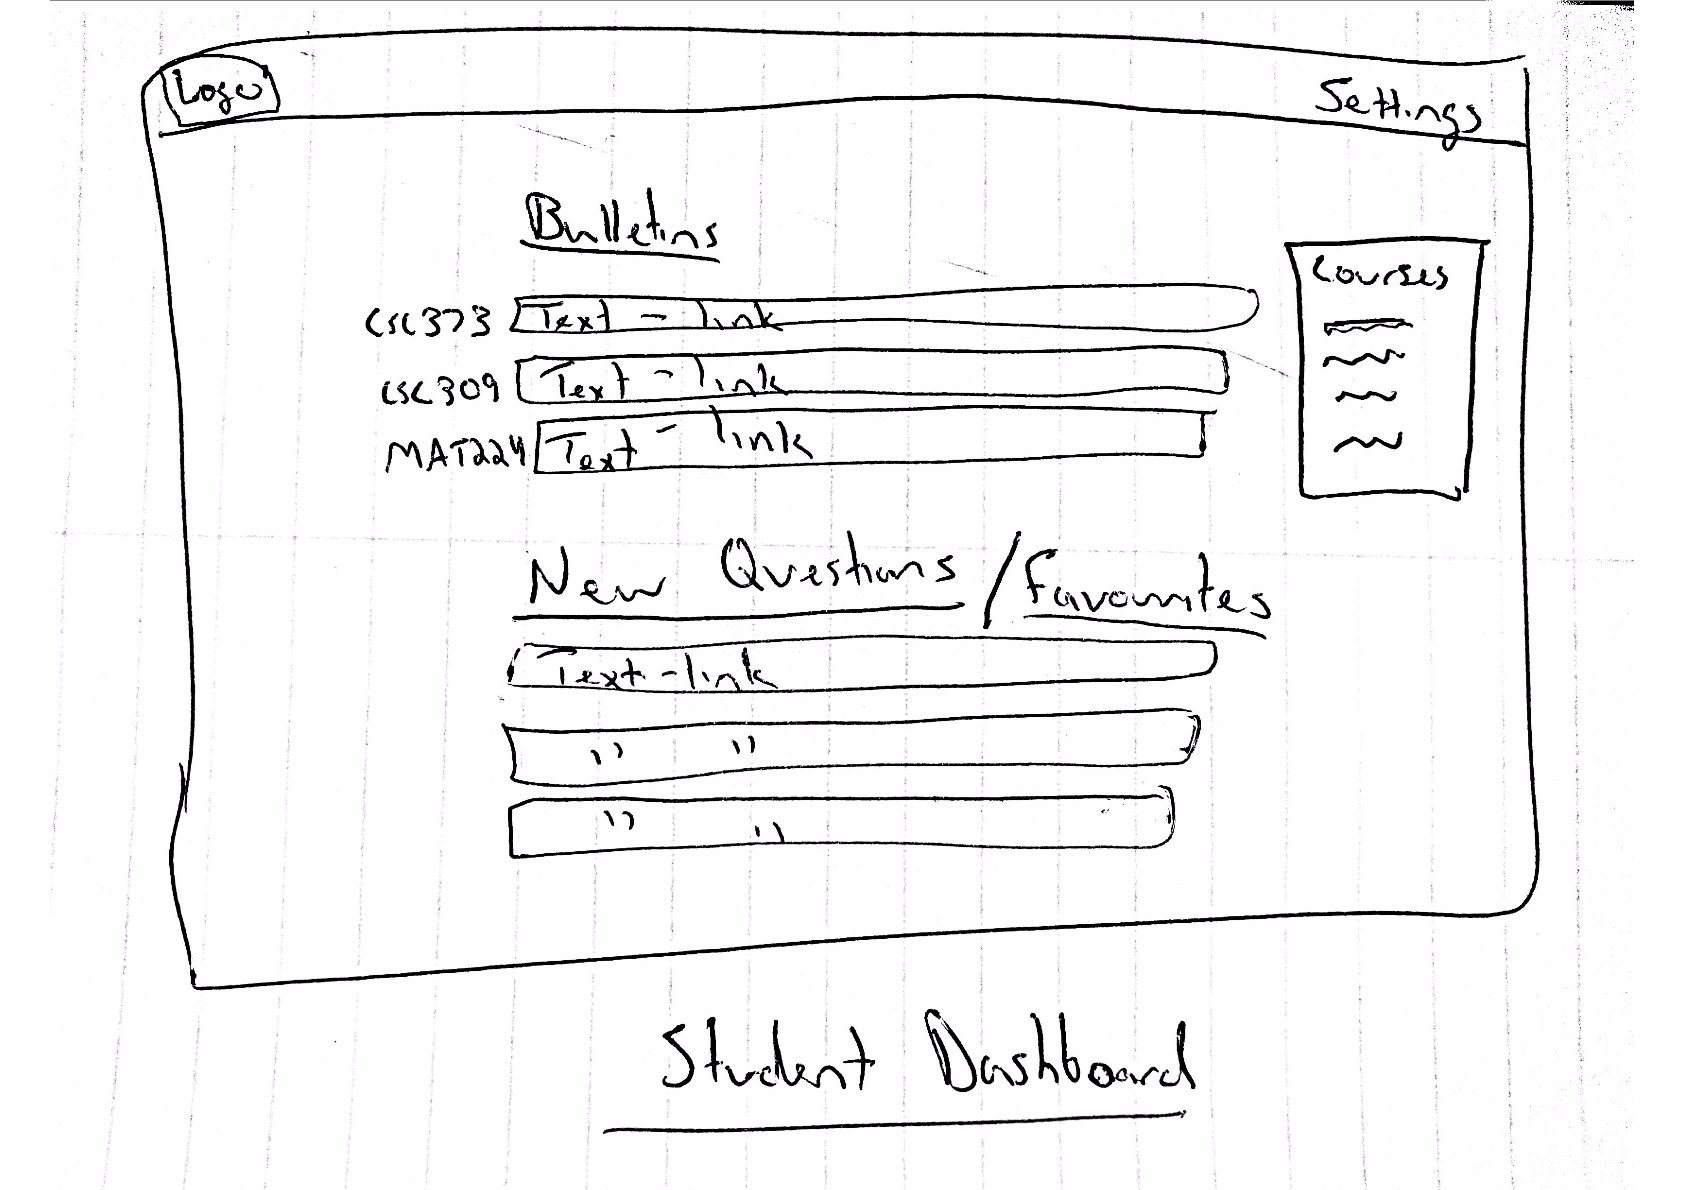 Logo
Settings
Bulletins
Courses
CSC373 Text - link
CSC309 Text - link
MAT224 Text - link
New Questions / Favourites
Text - link
" "
" "
Student Dashboard